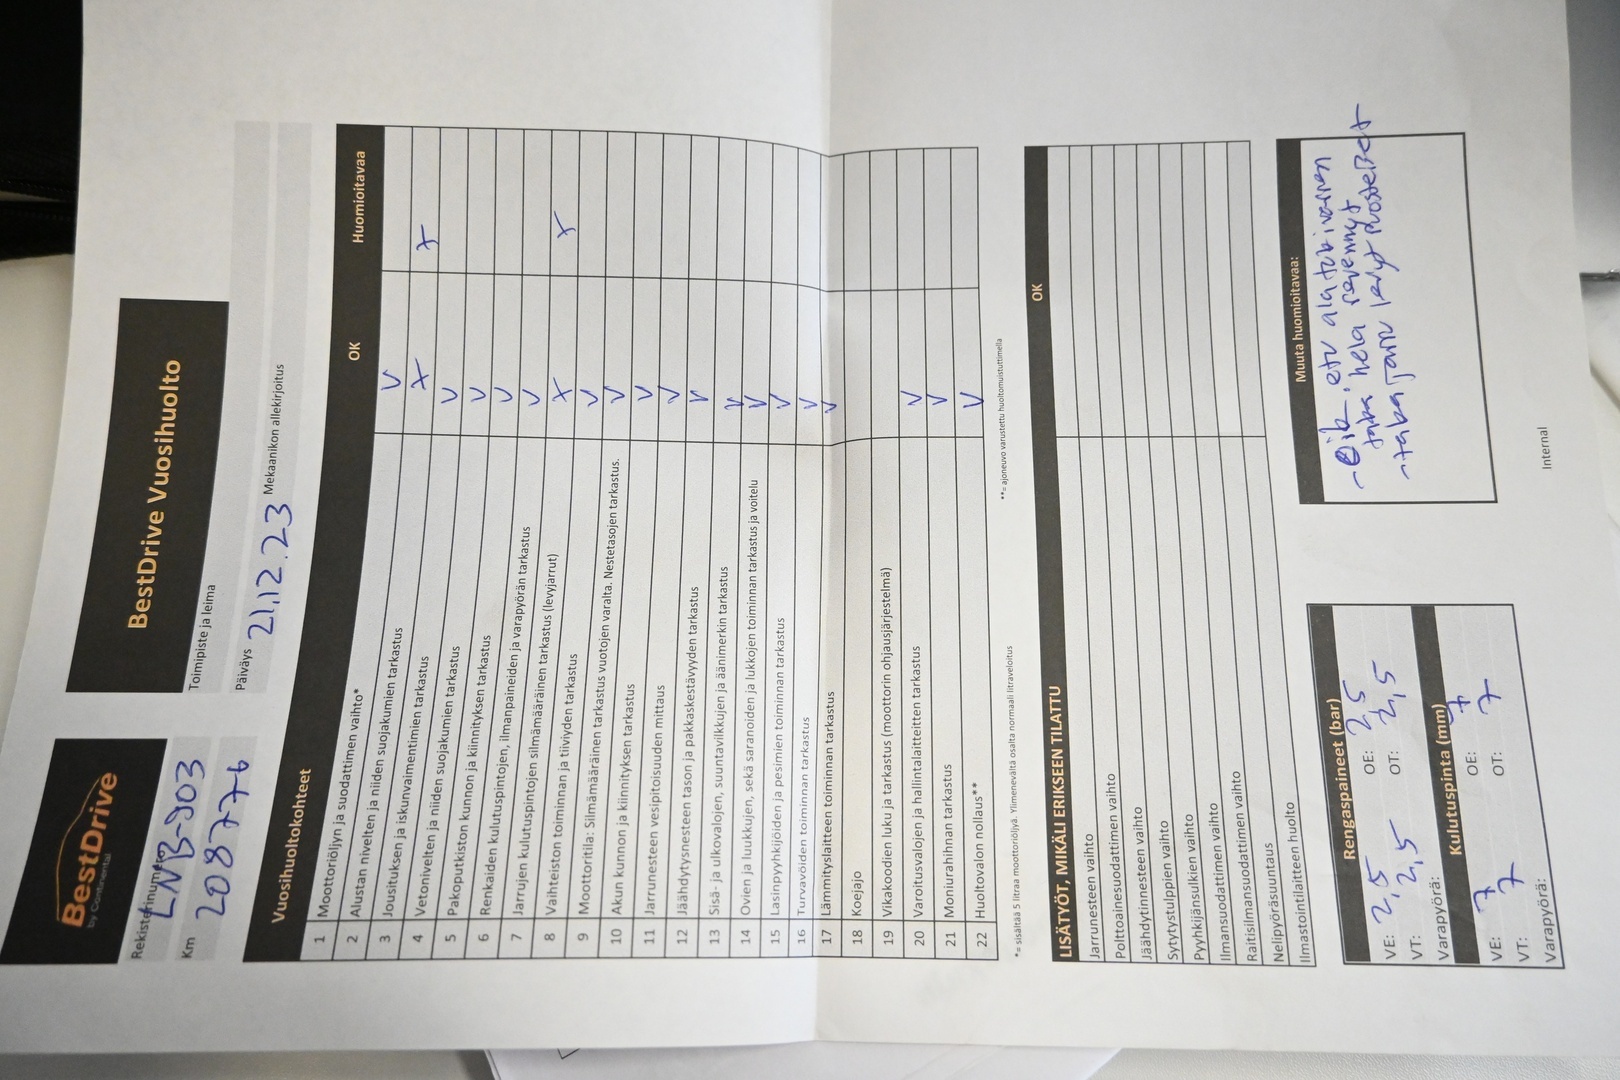 BestDrive
by Continental
BestDrive Vuosihuolto
Rekisterinumero
LNB-903
Toimipiste ja leima
Km 208776
Päiväys 21.12.23 Mekaanikon allekirjoitus
Vuosihuoltokohteet OK Huomioitavaa
1 Moottoriöljyn ja suodattimen vaihto* V
2 Alustan nivelten ja niiden suojakumien tarkastus X X
3 Jousituksen ja iskunvaimentimien tarkastus V
4 Vetonivelten ja niiden suojakumien tarkastus V
5 Pakoputkiston kunnon ja kiinnityksen tarkastus V
6 Renkaiden kulutuspintojen, ilmanpaineiden ja varapyörän tarkastus V
7 Jarrujen kulutuspintojen silmämääräinen tarkastus (levyjarrut) X X
8 Vaihteiston toiminnan ja tiiviyden tarkastus V
9 Moottoritila: Silmämääräinen tarkastus vuotojen varalta. Nestetasojen tarkastus. V
10 Akun kunnon ja kiinnityksen tarkastus V
11 Jarrunesteen vesipitoisuuden mittaus V
12 Jäähdytysnesteen tason ja pakkaskestävyyden tarkastus V
13 Sisä- ja ulkovalojen, suuntavilkkujen ja äänimerkin tarkastus V
14 Ovien ja luukkujen, sekä saranoiden ja lukkojen toiminnan tarkastus ja voitelu V
15 Lasinpyyhkijöiden ja pesimien toiminnan tarkastus V
16 Turvavöiden toiminnan tarkastus V
17 Lämmityslaitteen toiminnan tarkastus V
18 Koejajo
19 Vikakoodien luku ja tarkastus (moottorin ohjausjärjestelmä)
20 Varoitusvalojen ja hallintalaitteitten tarkastus V
21 Moniurahihnan tarkastus V
22 Huoltovalon nollaus** V
*= sisältää 5 litraa moottoriöljyä. Ylimenevältä osalta normaali litraveloitus **= ajoneuvo varustettu huoltomuistuttimella
LISÄTYÖT, MIKÄLI ERIKSEEN TILATTU OK
Jarrunesteen vaihto
Polttoainesuodattimen vaihto
Jäähdytinnesteen vaihto
Sytytystulppien vaihto
Pyyhkijänsulkien vaihto
Ilmansuodattimen vaihto
Raitisilmansuodattimen vaihto
Nelipyöräsuuntaus
Ilmastointilaitteen huolto
Rengaspaineet (bar)
VE: 2,5 OE: 2,5
VT: 2,5 OT: 2,5
Varapyörä:
Kulutuspinta (mm)
VE: 7 OE: 7
VT: 7 OT: 7
Varapyörä:
Muuta huomioitavaa:
-Oik. etu alatukivarren
taka hela revennyt
-taka jarru levyt ruosteiset
Internal